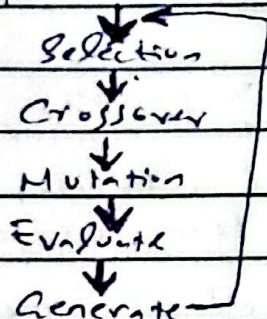 Selection
Crossover
Mutation
Evaluate
Generate